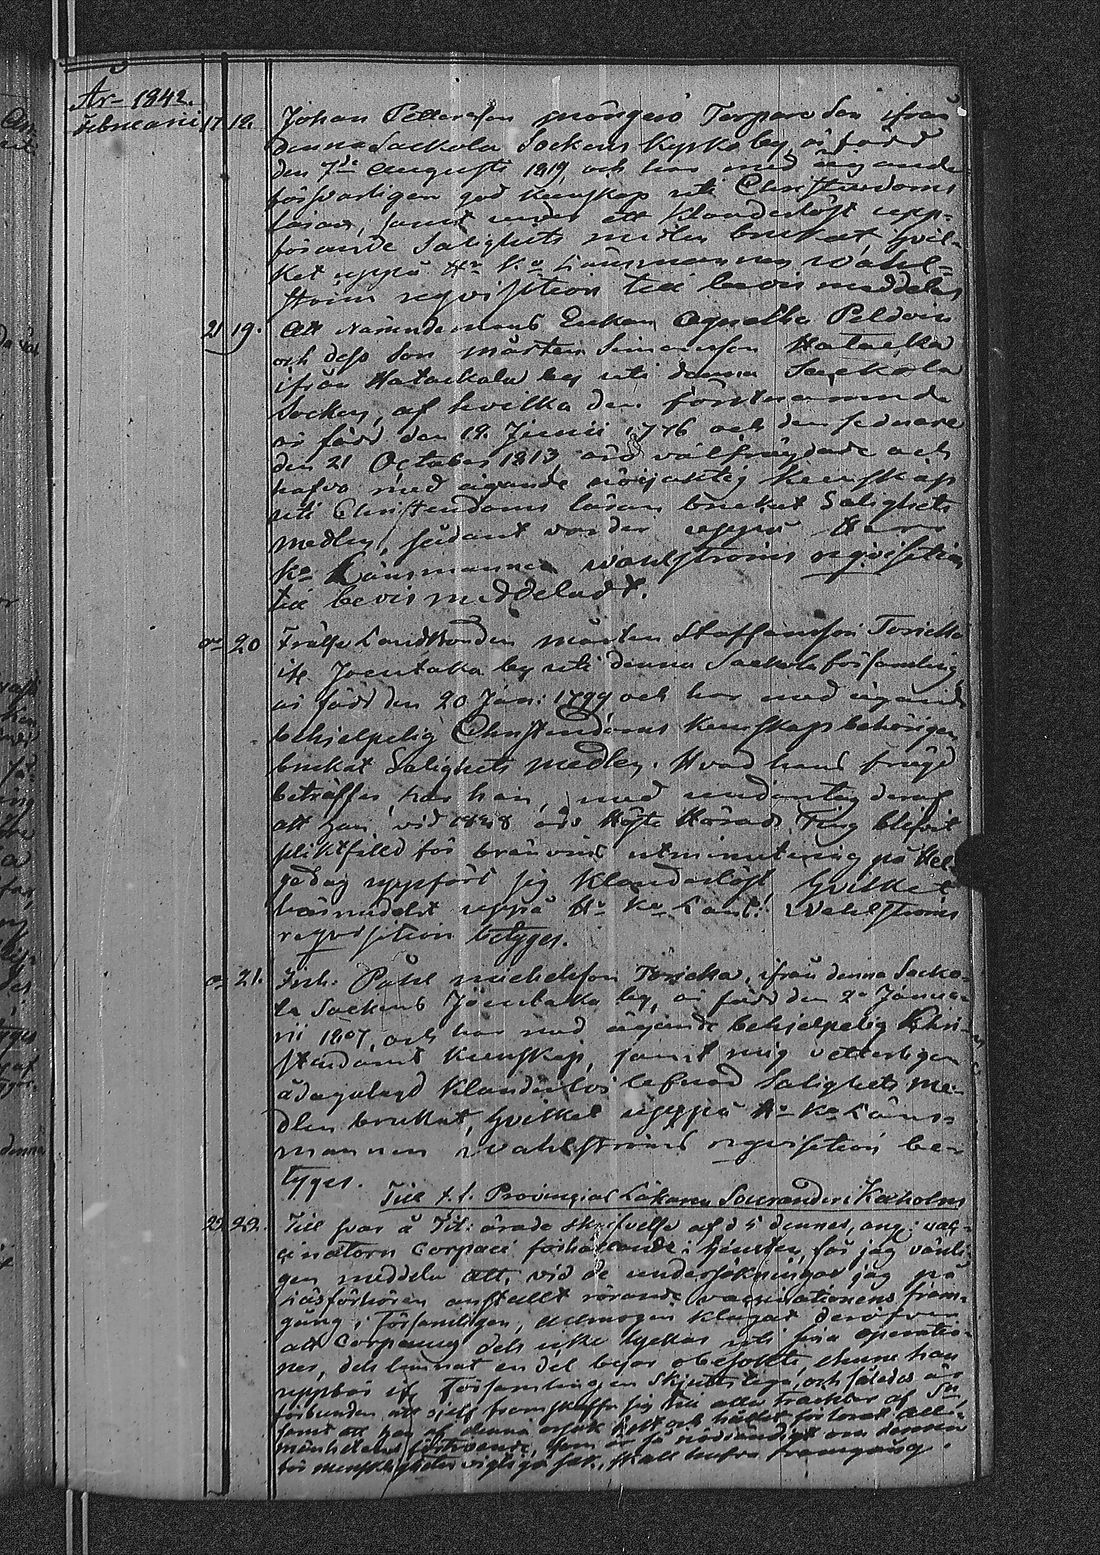 År 1842.
Februarii 17 18. Johan Pettersson Torpare Son ifrån
denna Sackola Sockens Kyrkoby, är född
den 7de Augusti 1819 och har med ägande
försvarligen god kunskap uti Christendoms
läran, samt under ett klanderlöst upp-
förande Salighets medlen brukat, hvil-
ket uppå Hr Ko Länsmannen Wahl-
ströms reqvisition till bevis meddelas
21 19. Att Nämndemans Enkan Agnetha Peldoin
och dess Son Mårten Simonsson Hatacka
ifrån Hatackala by uti denna Sackola
Socken, af hvilka den förstnämnde
är född den 19. Junii 1776 och den sednare
den 21 October 1813 äro välfrägdade och
hafva med ägande nöjaktig kunskap
uti Christendoms läran brukat Salighets
medlen, sådant varder uppå Herr
Ko Länsmannen Wahlströms reqvisition
till bevis meddeladt.
20 Frälse Landbonden Mårten Staffansson Toricka
ifr Joentaka by uti denna Sackola församling
är född den 20 Jan: 1799 och har med ägande
behjelpelig Christendoms kunskap behörigen
brukat Salighets medlen. Hvad hans frägd
beträffar, har han, med undantag deraf
att han, vid 1828 års Höste Härads Ting blifvit
pliktfälld för bränvins utminutering på Hel-
gedag uppfört sig klanderlöst, hvilket
härmedelst uppå Hr Ko Länsm: Wahlströms
reqvisition betyges.
21. Inh. Påhl Michelsson Toricka, ifrån denna Sacko-
la Sockens Joentaka by, är född den 2 Janua-
rii 1807, och har med ägande behjelpelig Chri-
stendoms kunskap, samt mig vetterligen
ådagalagd klanderlös lefnad Salighets me-
dlen brukat, hvilket uppå Hr Ko Läns-
mannen Wahlströms reqvisition be-
tyges.
Till t. f. Provincial Läkaren Saurander i Kexholm
22. 22. Till svar å Tit: ärade skrifvelse af d 5 dennes, ang: vac-
cinatorn Corpaci förhållande i tjensten, får jag vänli-
gen meddela att, vid de undersökningar jag på
läsförhören anställt rörande vaccinationens fram-
gång i Församlingen, allmogen klagat deröfver
att Corpaeus dels icke lyckas uti sina operatio-
ner, dels lämnat en del byar obesökte ehuru han
uppbär af Församlingen Skjuts lega, och således är
förbunden att sjelf framskaffa sig till alla trackter af Sn,
samt att han af denna orsak helt och hållet förlorat all-
mänhetens förtroende, som är så nödvändigt om denna
för menskligheten vigtiga sak, skall hafva framgång.